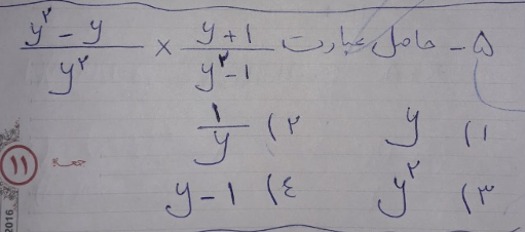 ۵- حاصل عبارت (y+1)/(y²-1) × (y²-y)/y²
۱) y ۲) 1/y
۳) y² ۴) y-1
۱۱
2016